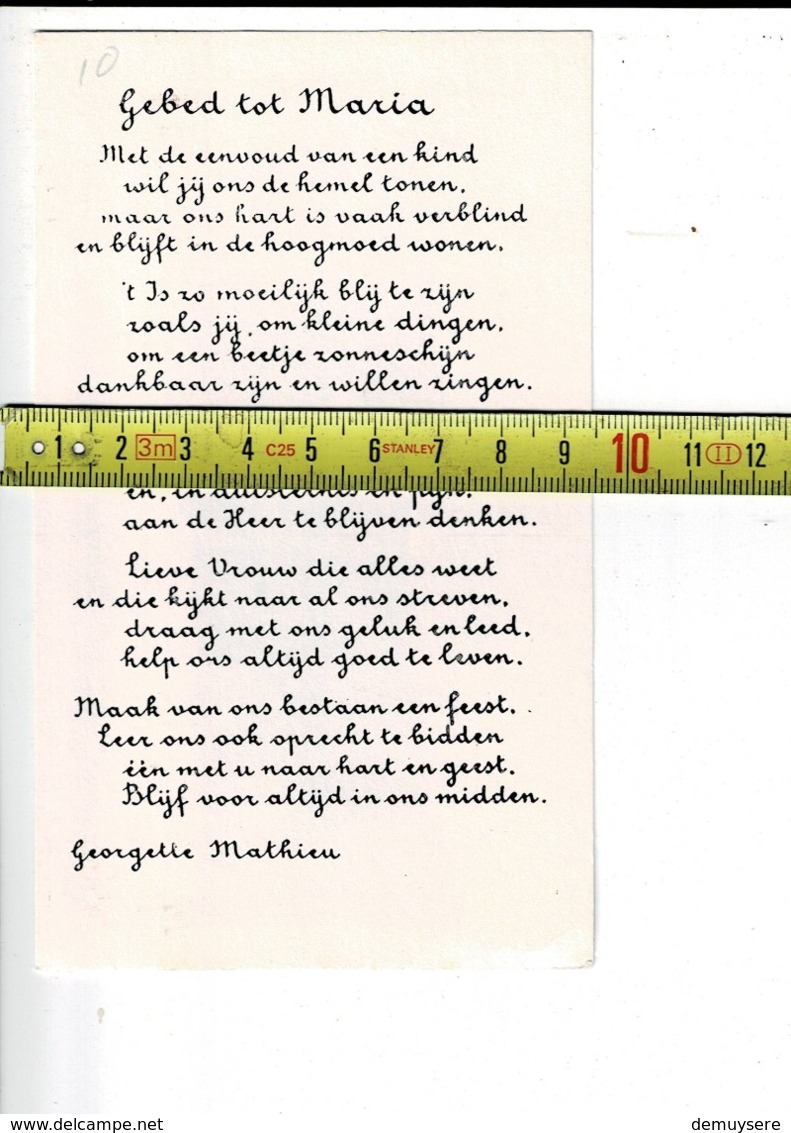 10
Gebed tot Maria
Met de eenvoud van een kind
wil jij ons de hemel tonen,
maar ons hart is vaak verblind
en blijft in de hoogmoed wonen.
't Is zo moeilijk blij te zijn
zoals jij, om kleine dingen,
om een beetje zonneschijn
dankbaar zijn en willen zingen.
1 2 3m 3 4 C25 5 6 STANLEY 7 8 9 10 11 II 12
en, in duisternis en pijn,
aan de Heer te blijven denken.
Lieve Vrouw die alles weet
en die kijkt naar al ons streven,
draag met ons geluk en leed,
help ons altijd goed te leven.
Maak van ons bestaan een feest.
Leer ons ook oprecht te bidden
één met u naar hart en geest.
Blijf voor altijd in ons midden.
Georgette Mathieu
delcampe.net
demuysere